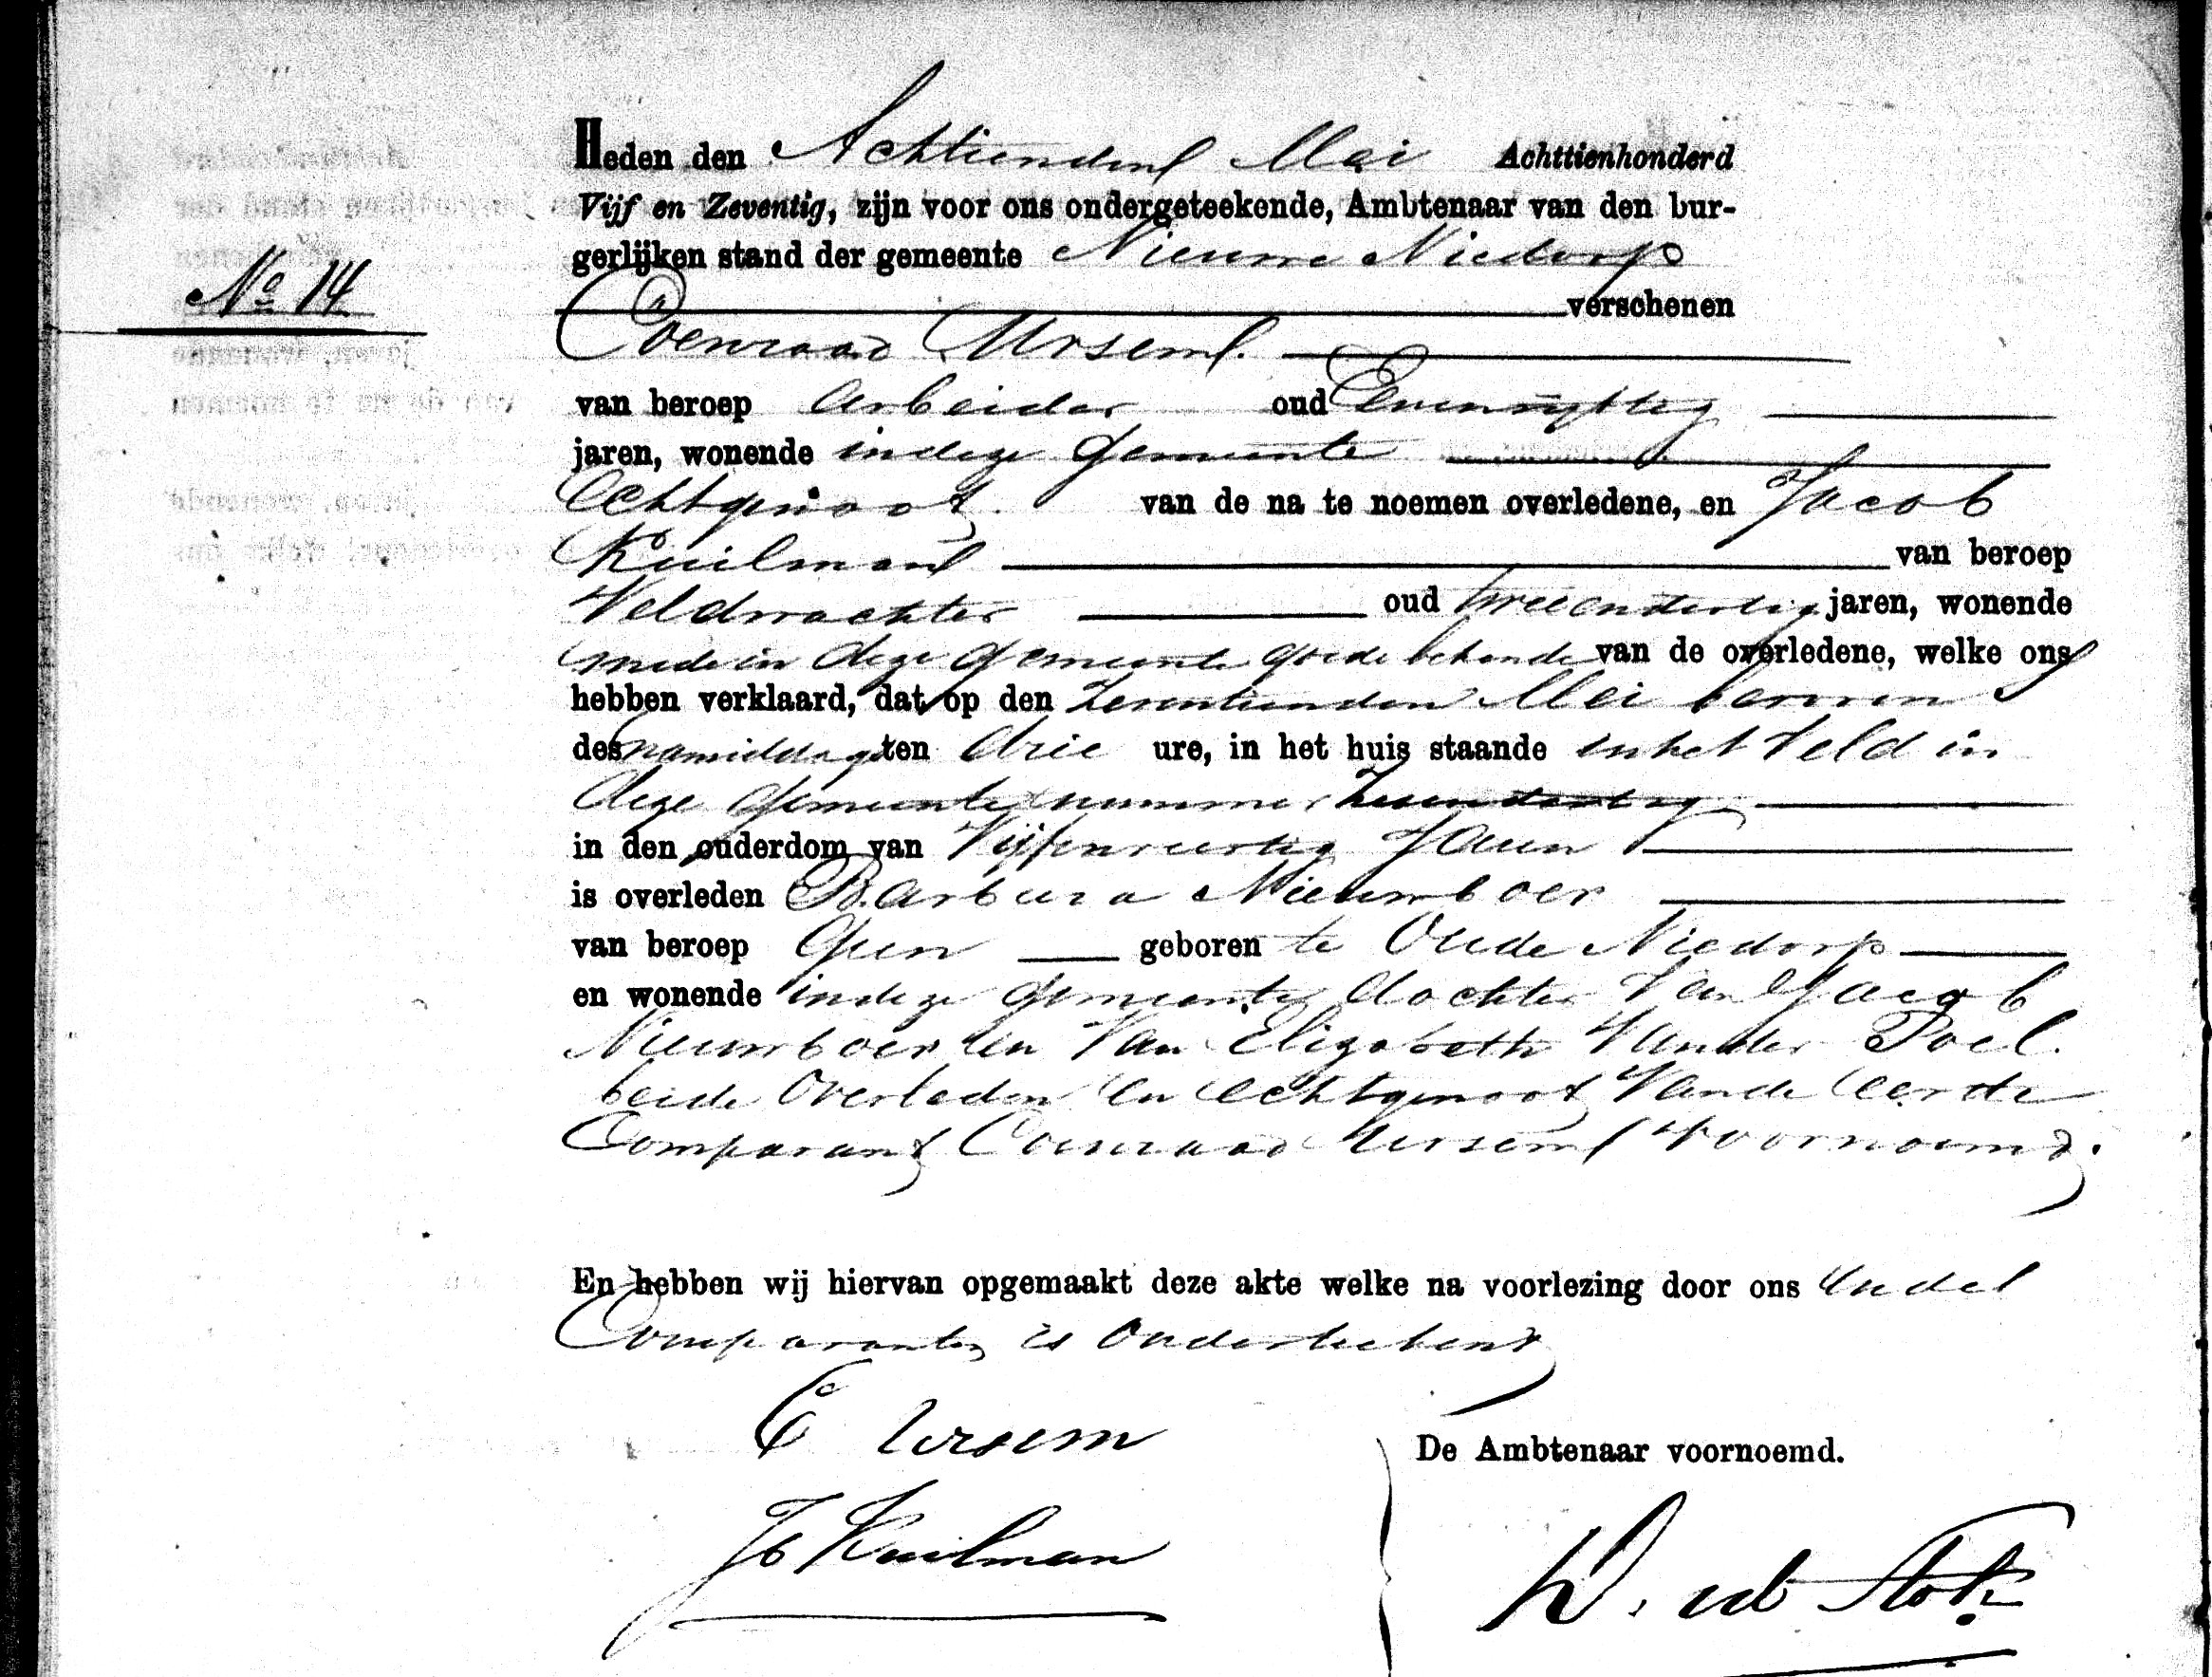 Heden den Achttienden Mei Achttienhonderd
Vijf en Zeventig, zijn voor ons ondergeteekende, Ambtenaar van den bur-
gerlijken stand der gemeente Nieuwe Niedorp
No 14
verschenen
Coenraad Ursem
van beroep Arbeider oud
jaren, wonende in deze Gemeente
Echtgenoot van de na te noemen overledene, en Jacob
Kuilman van beroep
Veldwachter oud twee en dertig jaren, wonende
mede in deze Gemeente goede bekende van de overledene, welke ons
hebben verklaard, dat op den Zeventienden Mei
des namiddags ten drie ure, in het huis staande in het Veld in
deze Gemeente nummer
in den ouderdom van Vijfenveertig Jaren
is overleden Barbara Nieuwboer
van beroep Geen geboren te Oude Niedorp
en wonende in deze Gemeente dochter van Jacob
Nieuwboer en van Elizabeth van der Poel.
beide Overleden en echtgenoot van de eerste
Comparant Coenraad Ursem Voornoemd.
En hebben wij hiervan opgemaakt deze akte welke na voorlezing door ons en de
Comparanten is Onderteekend
C Ursem
De Ambtenaar voornoemd.
Jb Kuilman